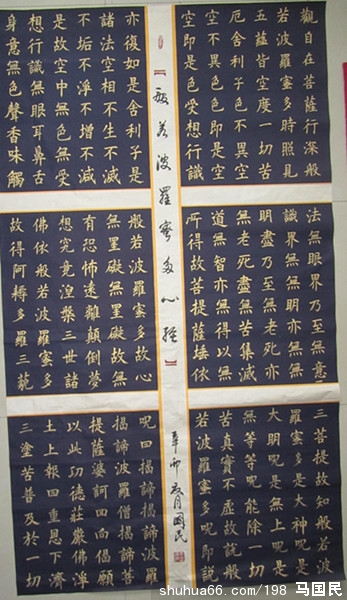 觀自在菩薩行深般
若波羅蜜多時照見
五蘊皆空度一切苦
厄舍利子色不異空
空不異色色即是空
空即是色受想行識
亦復如是舍利子是
諸法空相不生不滅
不垢不淨不增不減
是故空中無色無受
想行識無眼耳鼻舌
身意無色聲香味觸
法無眼界乃至無意
識界無無明亦無無
明盡乃至無老死亦
無老死盡無苦集滅
道無智亦無得以無
所得故菩提薩埵依
般若波羅蜜多故心
無罣礙無罣礙故無
有恐怖遠離顛倒夢
想究竟涅槃三世諸
佛依般若波羅蜜多
故得阿耨多羅三藐
三菩提故知般若波
羅蜜多是大神呪是
大明呪是無上呪是
無等等呪能除一切
苦真實不虛故說般
若波羅蜜多呪即說
呪曰揭諦揭諦波羅
揭諦波羅僧揭諦菩
提薩婆訶回向偈願
以此功德莊嚴佛淨
土上報四重恩下濟
三塗苦普及於一切
【般若波羅蜜多心經】
辛卯夏月國民
shuhua66.com/198 马国民